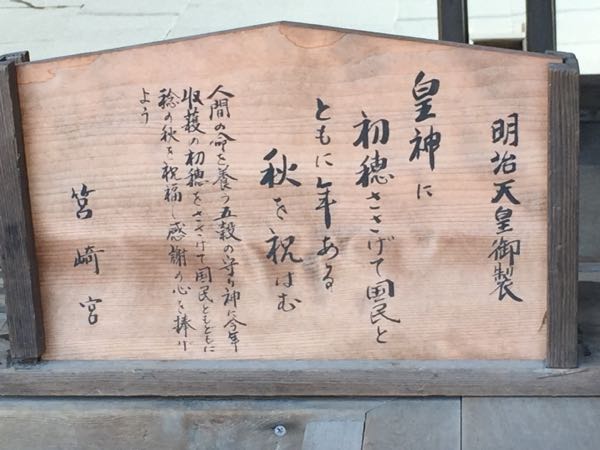 明治天皇御製
皇神に
初穂さゝげて国民と
ともに年ある
秋を祝はむ
人間の命を養う五穀の守り神に今年
収穫の初穂をささげて国民とともに
稔の秋を祝福し感謝の心を捧げ
よう
筥崎宮